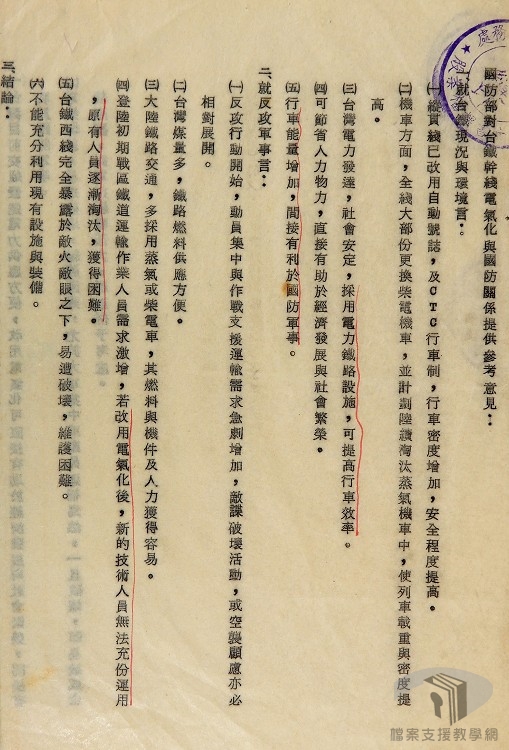 國防部對台鐵幹綫電氣化與國防關係提供參考意見：
一、就台鐵現況與環境言：
㈠縱貫綫已改用自動號誌，及CTC行車制，行車密度增加，安全程度提高。
㈡機車方面，全綫大部份更換柴電機車，並計劃陸續淘汰蒸氣機車中，使列車載重與密度提
高。
㈢台灣電力發達，社會安定，採用電力鐵路設施，可提高行車效率。
㈣可節省人力物力，直接有助於經濟發展與社會繁榮。
㈤行車能量增加，間接有利於國防軍事。
二、就反攻軍事言：
㈠反攻行動開始，動員集中與作戰支援運輸需求急劇增加，敵諜破壞活動，或空襲顧慮亦必
相對展開。
㈡台灣煤量多，鐵路燃料供應方便。
㈢大陸鐵路交通，多採用蒸氣或柴電車，其燃料與機件及人力獲得容易。
㈣登陸初期戰區鐵道運輸作業人員需求激增，若改用電氣化後，新的技術人員無法充份運用
，原有人員逐漸淘汰，獲得困難。
㈤台鐵西綫完全暴露於敵火敵眼之下，易遭破壞，維護困難。
㈥不能充分利用現有設施與裝備。
三、結論：
檔案支援教學網